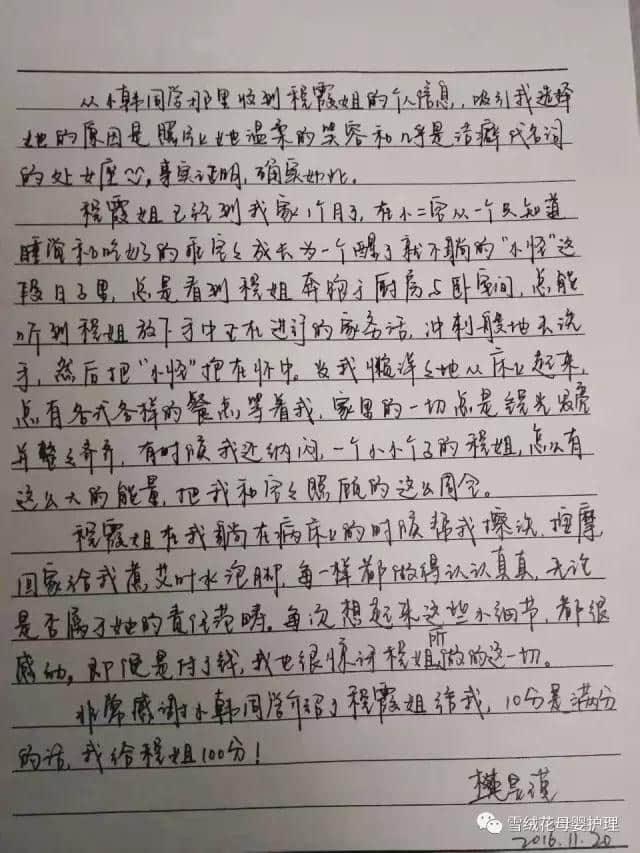 从小韩同学那里收到程霞姐的个人信息，吸引我选择
她的原因是照片上她温柔的笑容和几乎是洁癖代名词
的处女座，事实证明，确实如此。
程霞姐已经到我家1个月了，在小二宝从一个只知道
睡觉和吃奶的乖宝宝成长为一个醒了就不躺的“小怪”这
段日子里，总是看到程姐奔跑于厨房与卧室间，总能
听到程姐放下手中正在进行的家务活，冲刺般地去洗
手，然后把“小怪”抱在怀中。当我懒洋洋地从床上起来，
总有各式各样的餐点等着我，家里的一切总是锃光发亮
并整整齐齐，有时候我还纳闷，一个小小个子的程姐，怎么有
这么大的能量，把我和宝宝照顾的这么周全。
程霞姐在我躺在病床上的时候帮我擦洗、按摩，
回家给我煮艾叶水泡脚，每一样都做得认认真真，无论
是否属于她的责任范畴。每次想起来这些小细节，都很
感动，即便是付了钱，我也很惊讶程姐所做的这一切。
非常感谢小韩同学介绍了程霞姐给我，10分是满分
的话，我给程姐100分！
2016.11.20
雪绒花母婴护理